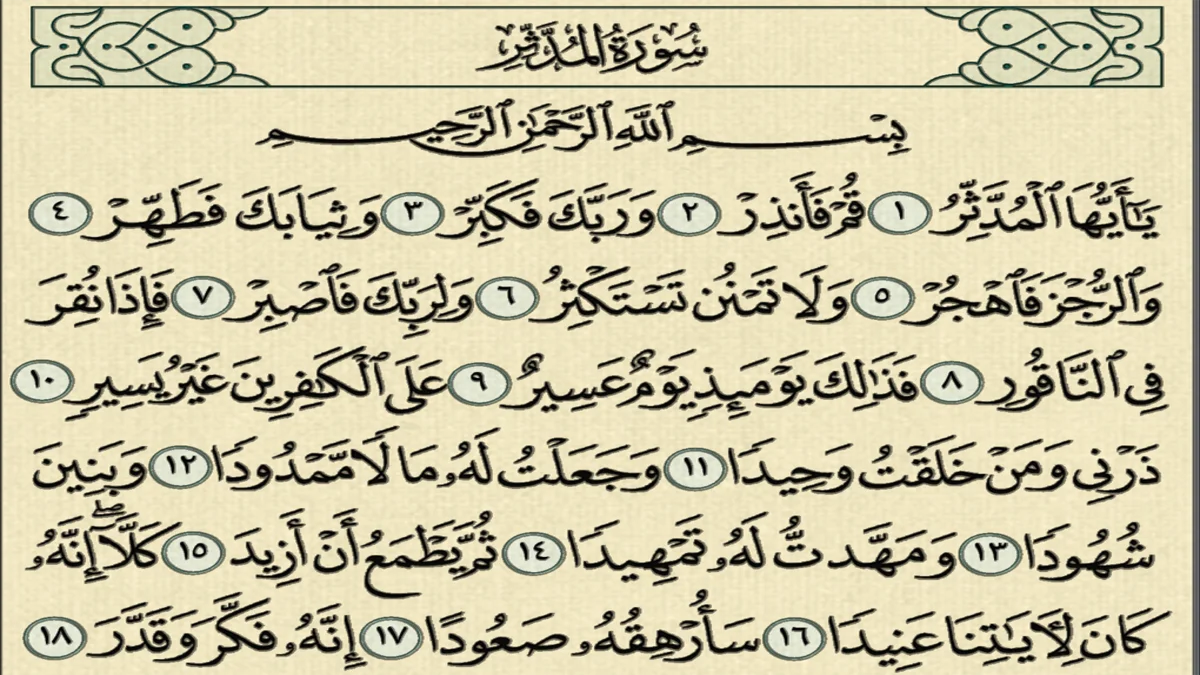 سُورَةُ المُدَّثِّرِ
بِسْمِ ٱللَّهِ ٱلرَّحْمَٰنِ ٱلرَّحِيمِ
يَٰٓأَيُّهَا ٱلْمُدَّثِّرُ ١ قُمْ فَأَنذِرْ ٢ وَرَبَّكَ فَكَبِّرْ ٣ وَثِيَابَكَ فَطَهِّرْ ٤
وَٱلرُّجْزَ فَٱهْجُرْ ٥ وَلَا تَمْنُن تَسْتَكْثِرُ ٦ وَلِرَبِّكَ فَٱصْبِرْ ٧ فَإِذَا نُقِرَ
فِى ٱلنَّاقُورِ ٨ فَذَٰلِكَ يَوْمَئِذٍ يَوْمٌ عَسِيرٌ ٩ عَلَى ٱلْكَٰفِرِينَ غَيْرُ يَسِيرٍ ١٠
ذَرْنِى وَمَنْ خَلَقْتُ وَحِيدًا ١١ وَجَعَلْتُ لَهُۥ مَالًا مَّمْدُودًا ١٢ وَبَنِينَ
شُهُودًا ١٣ وَمَهَّدتُّ لَهُۥ تَمْهِيدًا ١٤ ثُمَّ يَطْمَعُ أَنْ أَزِيدَ ١٥ كَلَّآ ۖ إِنَّهُۥ
كَانَ لِأَيَٰتِنَا عَنِيدًا ١٦ سَأُرْهِقُهُۥ صَعُودًا ١٧ إِنَّهُۥ فَكَّرَ وَقَدَّرَ ١٨